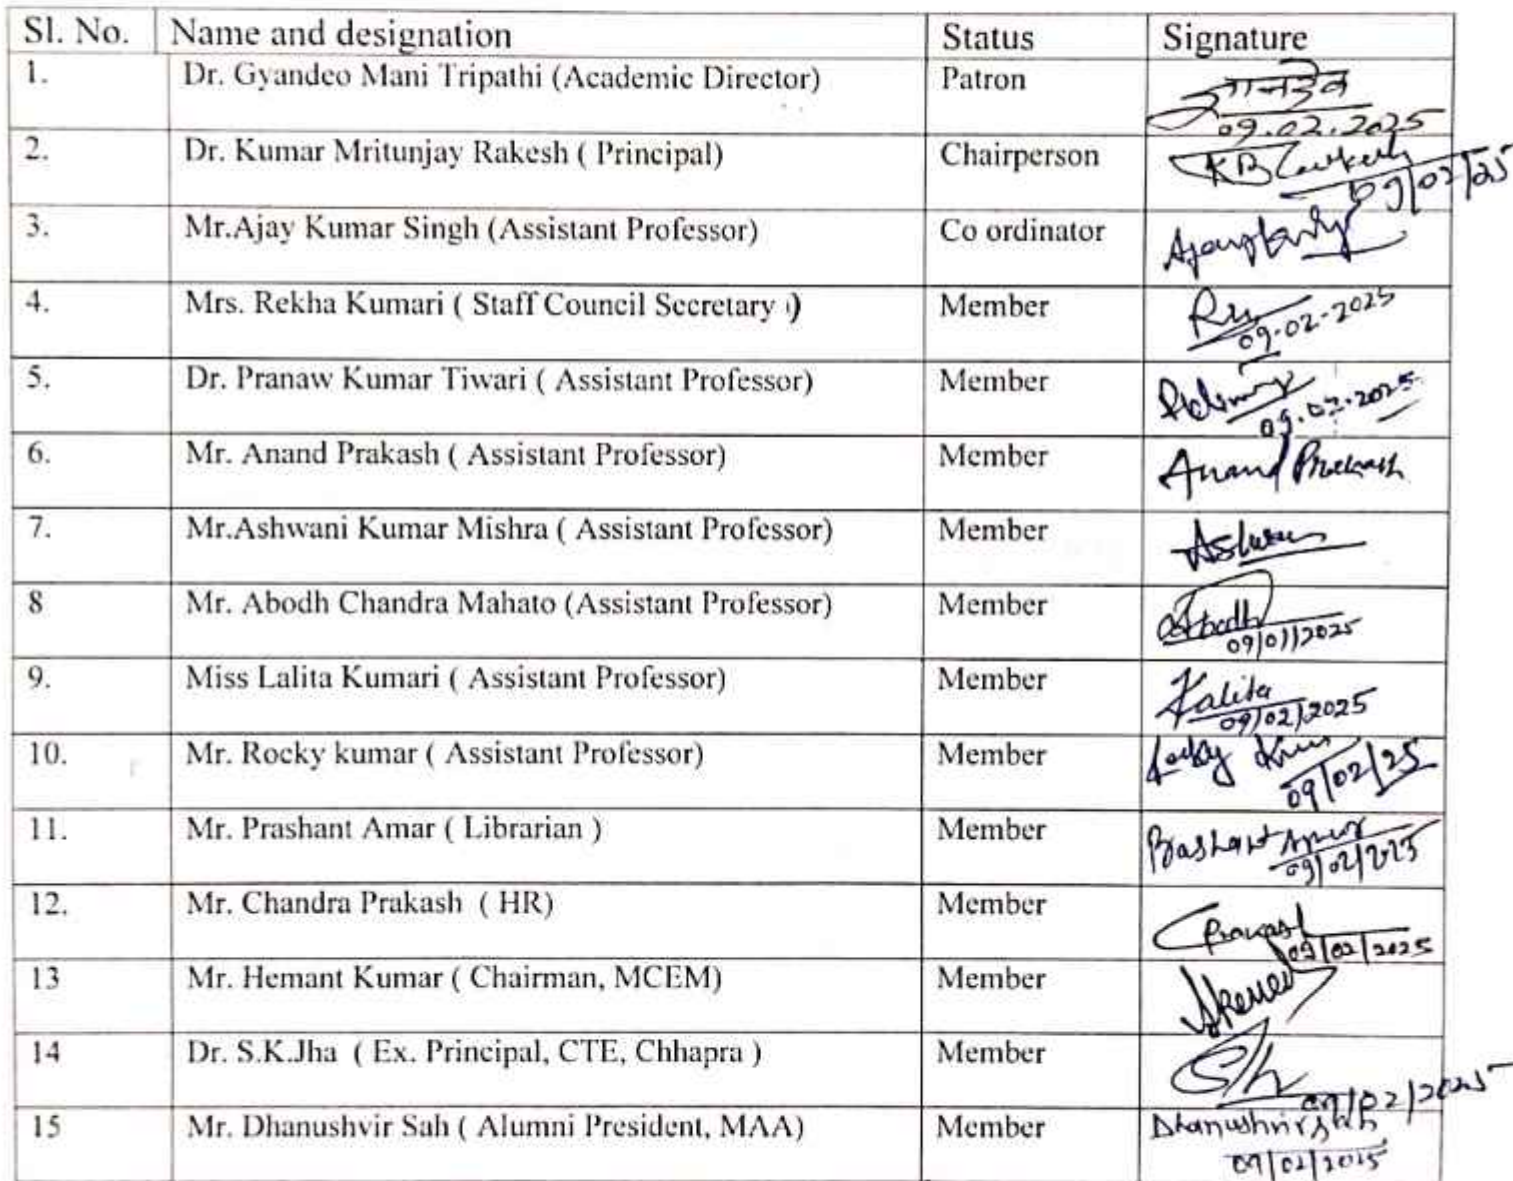 Sl. No. Name and designation Status Signature
1. Dr. Gyandeo Mani Tripathi (Academic Director) Patron ज्ञानदेव
09.02.2025
2. Dr. Kumar Mritunjay Rakesh ( Principal) Chairperson
09/02/25
3. Mr.Ajay Kumar Singh (Assistant Professor) Co ordinator
4. Mrs. Rekha Kumari ( Staff Council Secretary ) Member
09-02-2025
5. Dr. Pranaw Kumar Tiwari ( Assistant Professor) Member
09.02.2025
6. Mr. Anand Prakash ( Assistant Professor) Member Anand Prakash
7. Mr.Ashwani Kumar Mishra ( Assistant Professor) Member
8 Mr. Abodh Chandra Mahato (Assistant Professor) Member Abodh
09/01/2025
9. Miss Lalita Kumari ( Assistant Professor) Member Lalita
09/02/2025
10. Mr. Rocky kumar ( Assistant Professor) Member
09/02/25
11. Mr. Prashant Amar ( Librarian ) Member Prashant Amar
09/02/2025
12. Mr. Chandra Prakash ( HR) Member
09/02/2025
13 Mr. Hemant Kumar ( Chairman, MCEM) Member
14 Dr. S.K.Jha ( Ex. Principal, CTE, Chhapra ) Member
09/02/2025
15 Mr. Dhanushvir Sah ( Alumni President, MAA) Member Dhanushvir Sah
09/02/2025